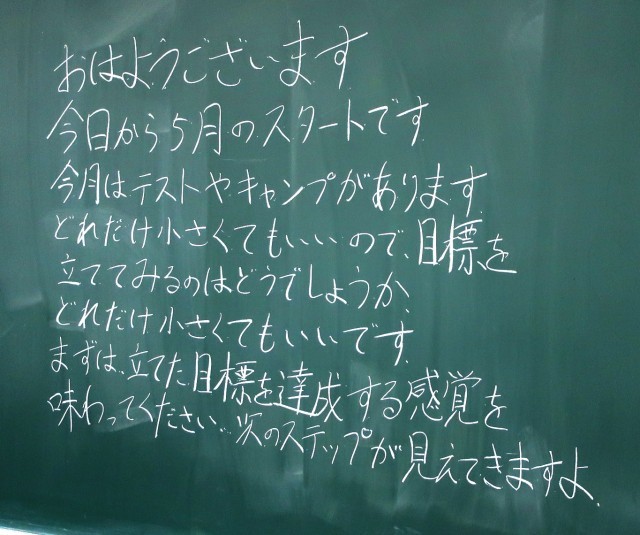 おはようございます
今日から5月のスタートです
今月はテストやキャンプがあります
どれだけ小さくてもいいので、目標を
立ててみるのはどうでしょうか、
どれだけ小さくてもいいです、
まずは、立てた目標を達成する感覚を
味わってください…次のステップが見えてきますよ、